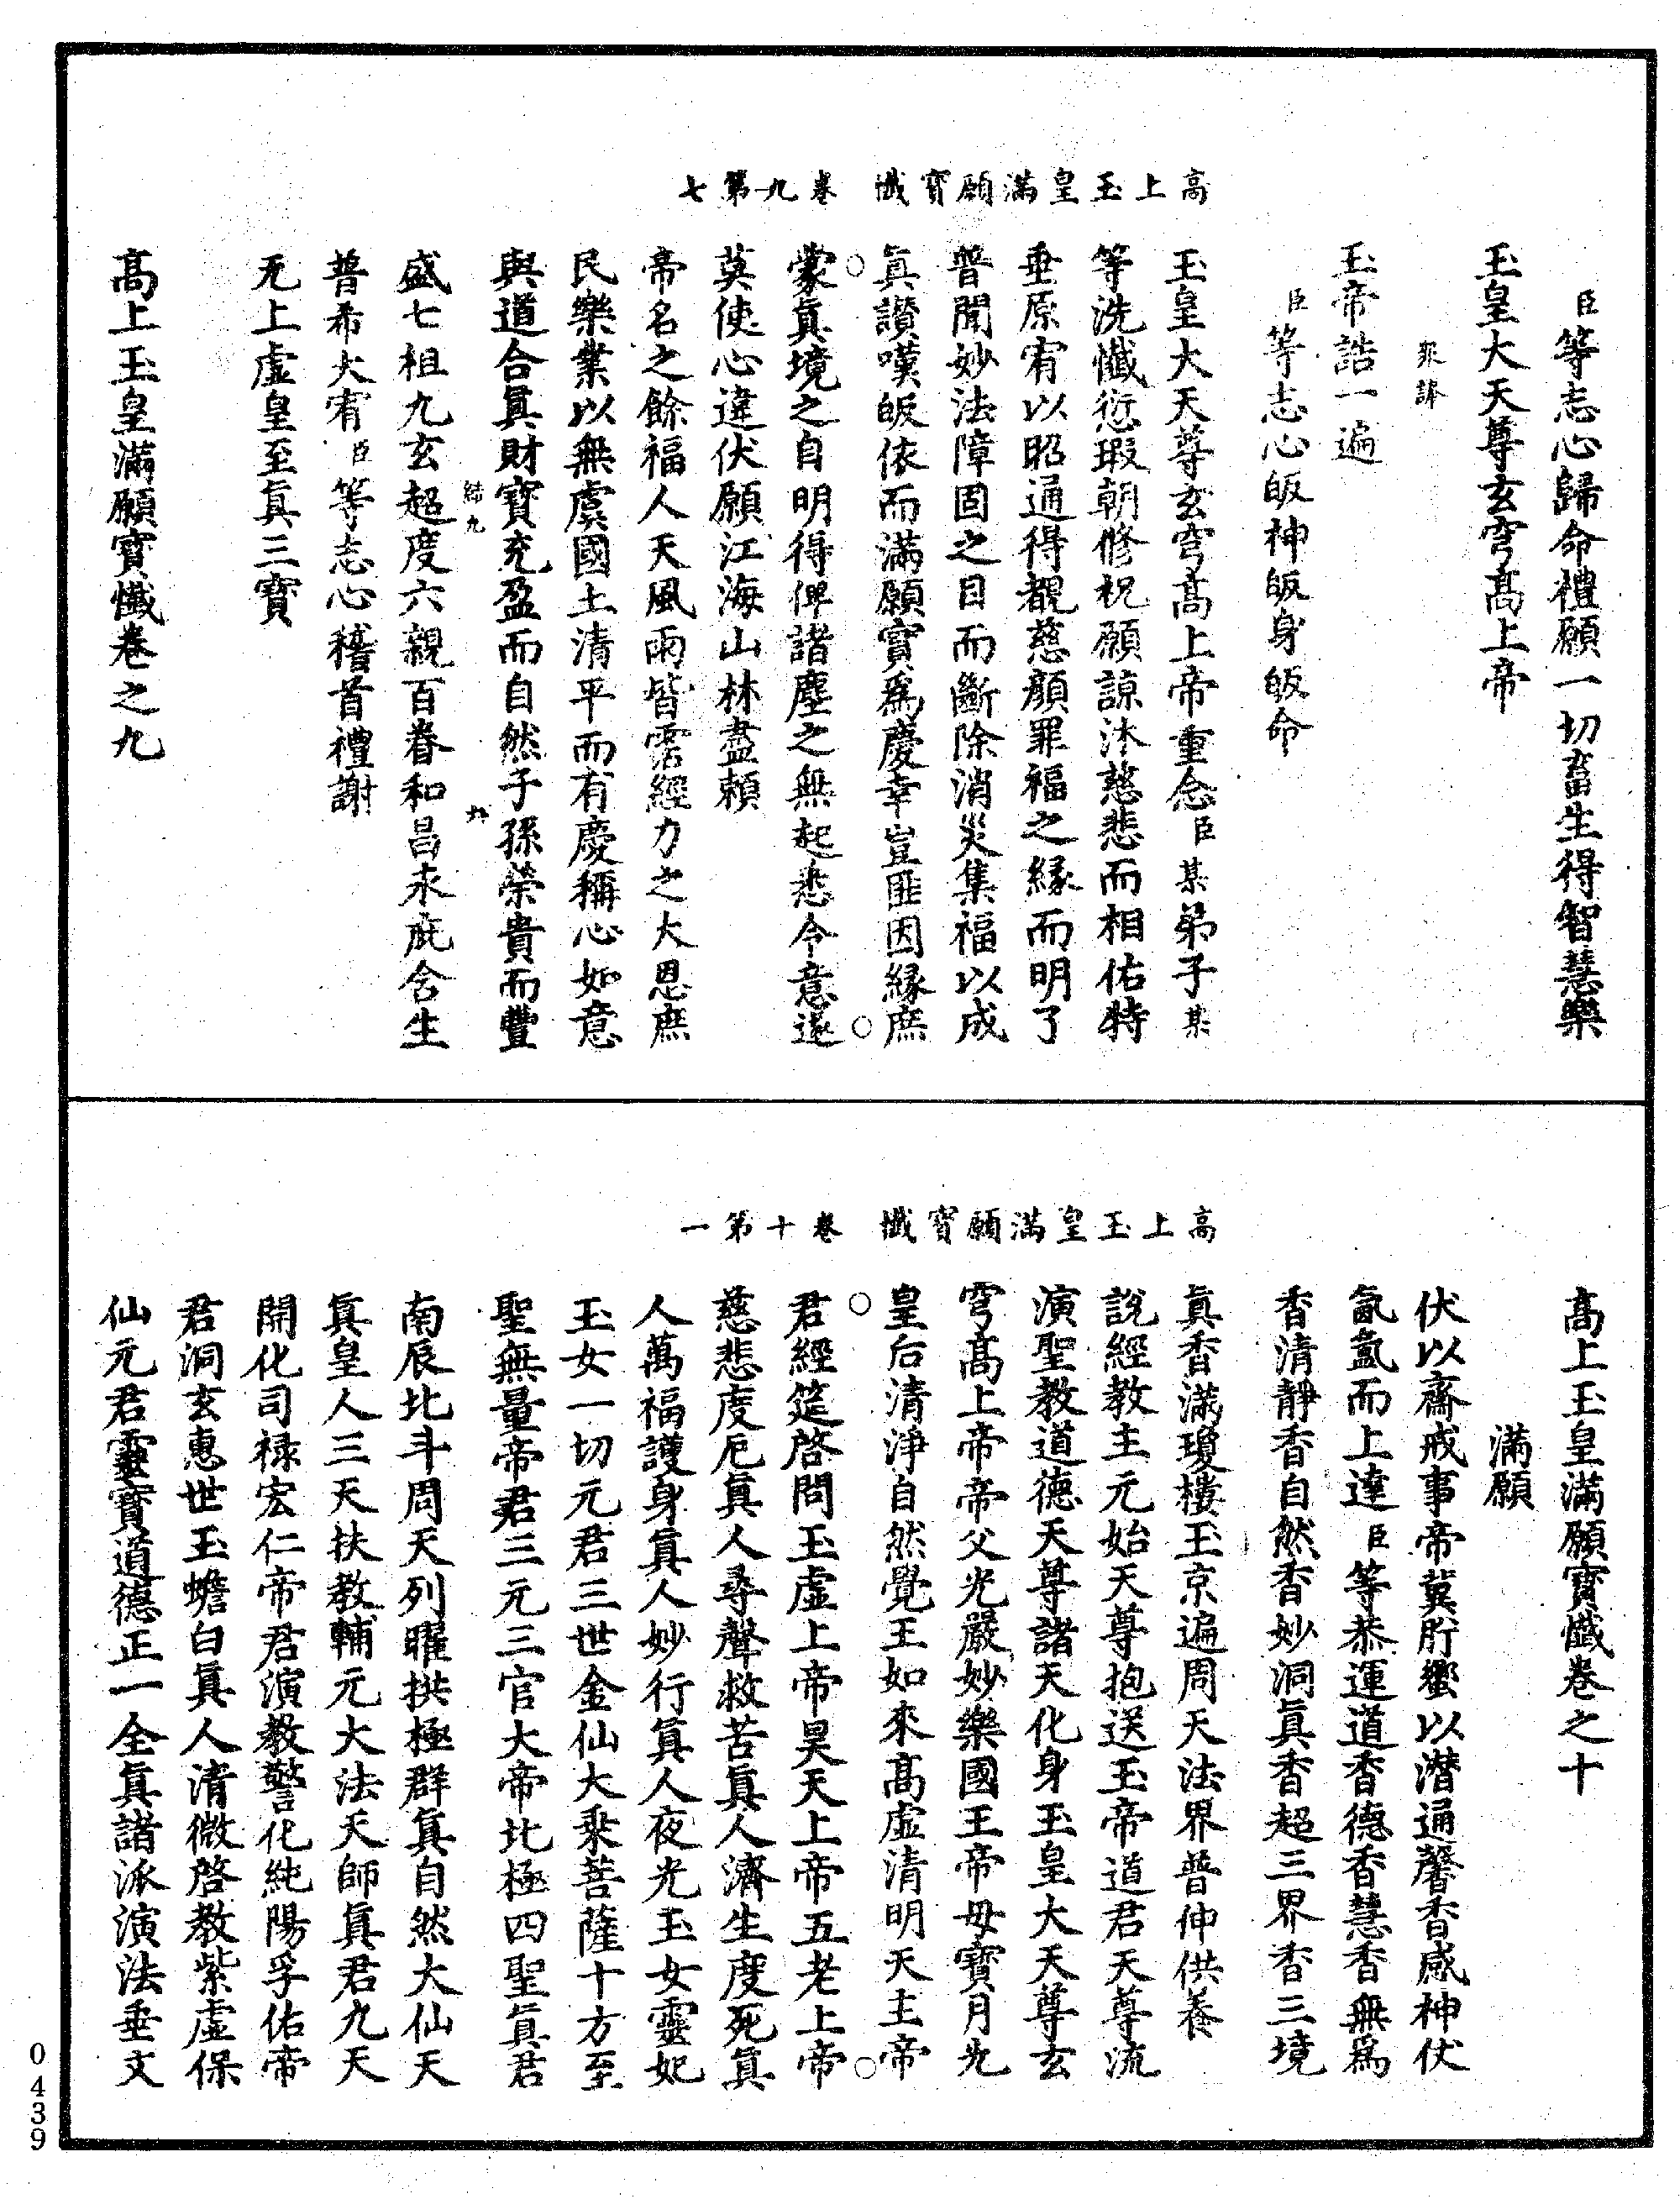 高上玉皇滿願寶懺　卷九第七
臣等志心歸命禮願一切畜生得智慧樂
玉皇大天尊玄穹高上帝
衆諱
玉帝誥一遍
臣等志心皈神皈身皈命
玉皇大天尊玄穹高上帝重念臣某弟子某
等洗懺愆瑕朝修祝願諒沐慈悲而相佑特
垂原宥以昭通得覩慈顔罪福之緣而明了
普聞妙法障固之目而斷除消災集福以成
眞讃嘆皈依而滿願實爲慶幸豈匪因緣庶
蒙眞境之自明得俾諸塵之無起悉令意遂
莫使心違伏願江海山林盡賴
帝名之餘福人天風雨皆霑經力之大恩庶
民樂業以無虞國土清平而有慶稱心如意
與道合眞財寶充盈而自然子孫榮貴而豐
盛七祖九玄超度六親百眷和昌永庇含生
普希大宥臣等志心稽首禮謝
无上虛皇至眞三寶
高上玉皇滿願寶懺卷之九
高上玉皇滿願寶懺　卷十第一
高上玉皇滿願寶懺卷之十
滿願
伏以齋戒事帝冀肹蠁以潛通馨香感神伏
氤氳而上達臣等恭運道香德香慧香無爲
香清靜香自然香妙洞眞香超三界香三境
眞香滿瓊樓玉京遍周天法界普伸供養
說經教主元始天尊抱送玉帝道君天尊流
演聖教道德天尊諸天化身玉皇大天尊玄
穹高上帝帝父光嚴妙樂國王帝母寶月光
皇后清淨自然覺王如來高虛清明天主帝
君經筵啓問玉虛上帝昊天上帝五老上帝
慈悲度厄眞人尋聲救苦眞人濟生度死眞
人萬福護身眞人妙行眞人夜光玉女靈妃
玉女一切元君三世金仙大乘菩薩十方至
聖無量帝君三元三官大帝北極四聖眞君
南辰北斗周天列曜拱極群眞自然大仙天
眞皇人三天扶教輔元大法天師眞君九天
開化司祿宏仁帝君演教警化純陽孚佑帝
君洞玄惠世玉蟾白眞人清微啓教紫虛保
仙元君靈寶道德正一全眞諸派演法垂文
0439